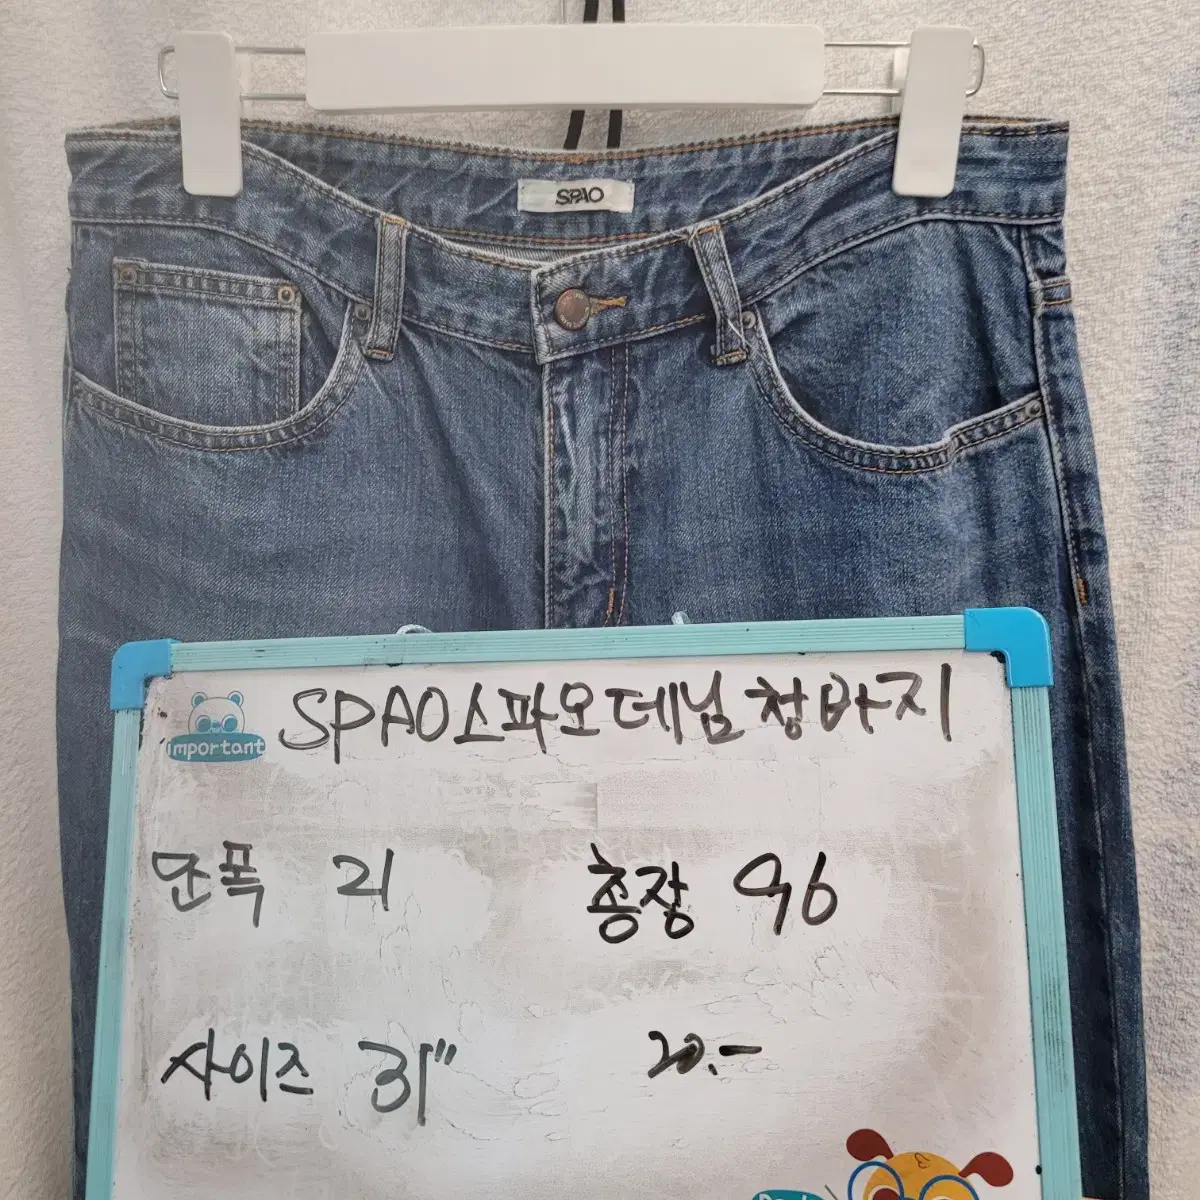 SPAO
important
SPAO스파오데님청바지
단폭 21 총장 96
사이즈 31" 20.-